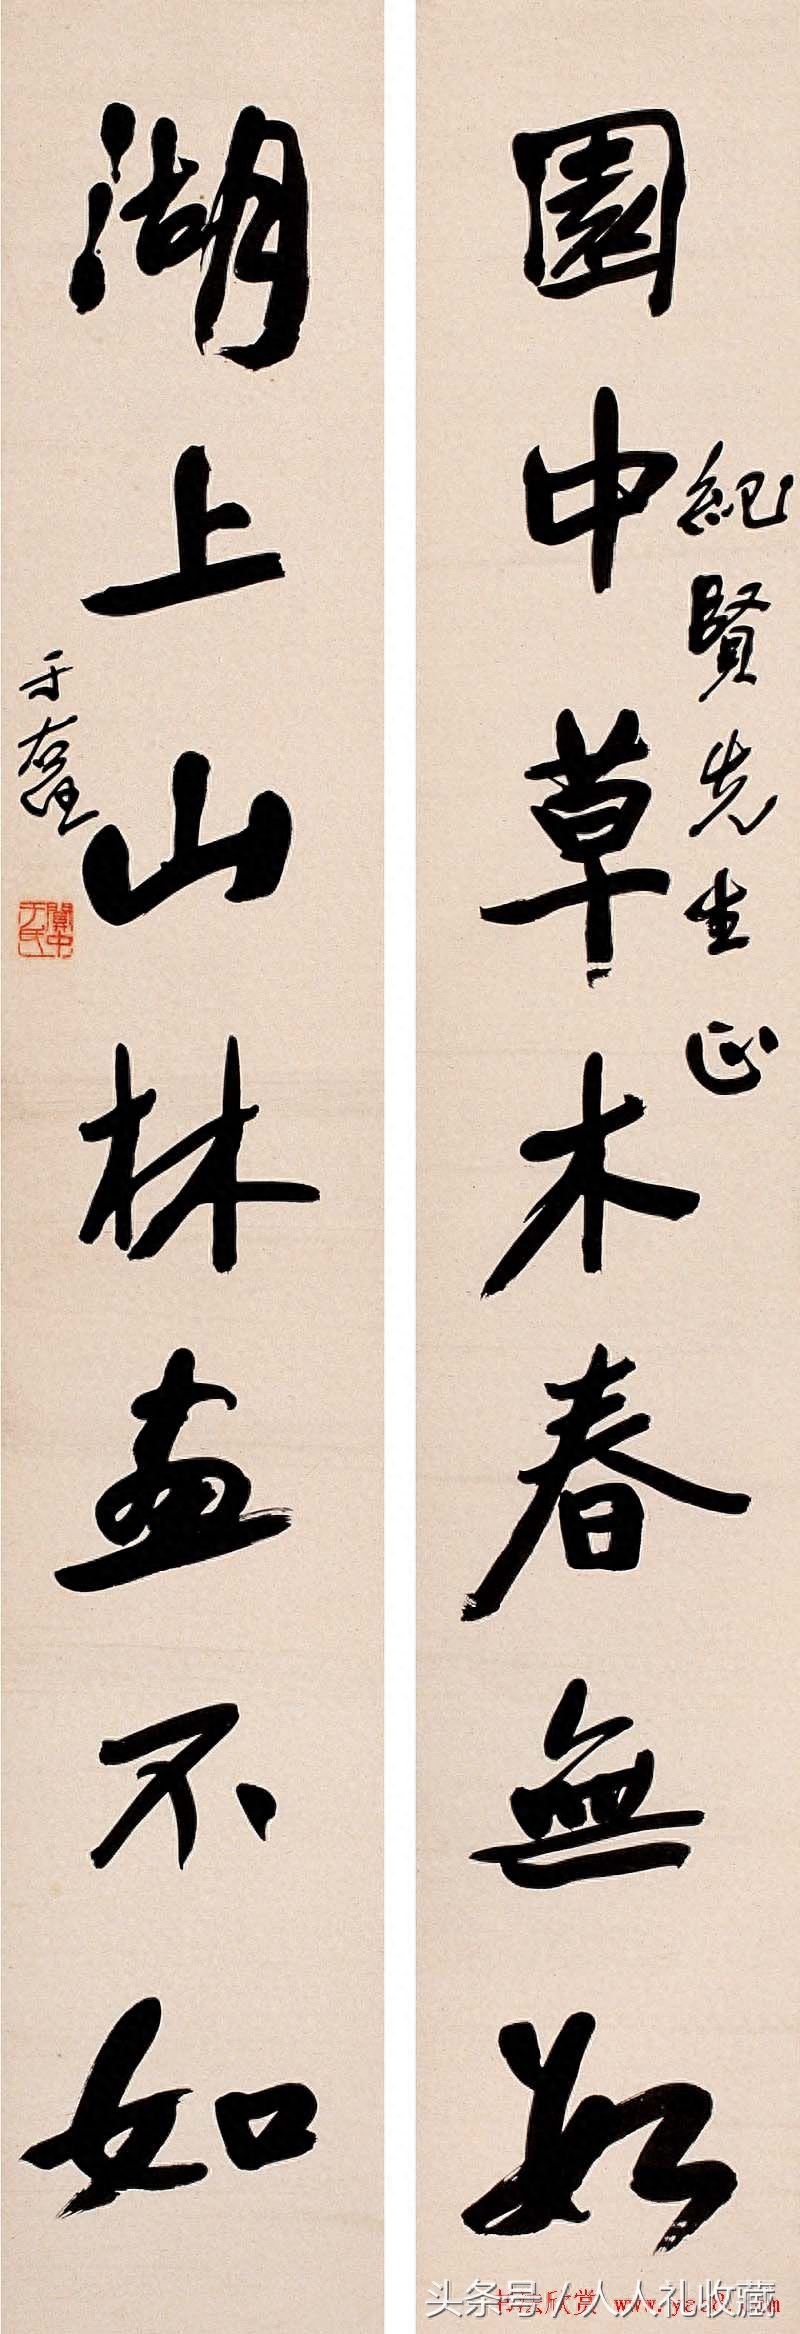 園中草木春無數
紀賢先生正
湖上山林畫不如
于右任
關中于氏
头条号/人人礼收藏
书法欣赏 www.yac8.com